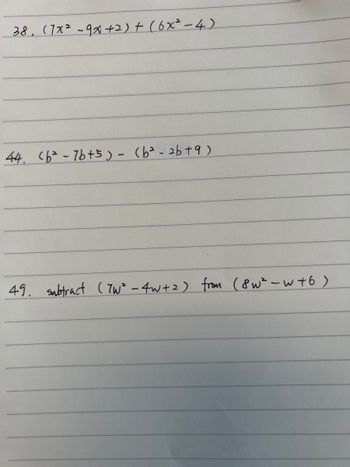 38. (7x² - 9x + 2) + (6x² - 4)
44. (b² - 7b + 5) - (b² - 2b + 9)
49. subtract (7w² - 4w + 2) from (8w² - w + 6)